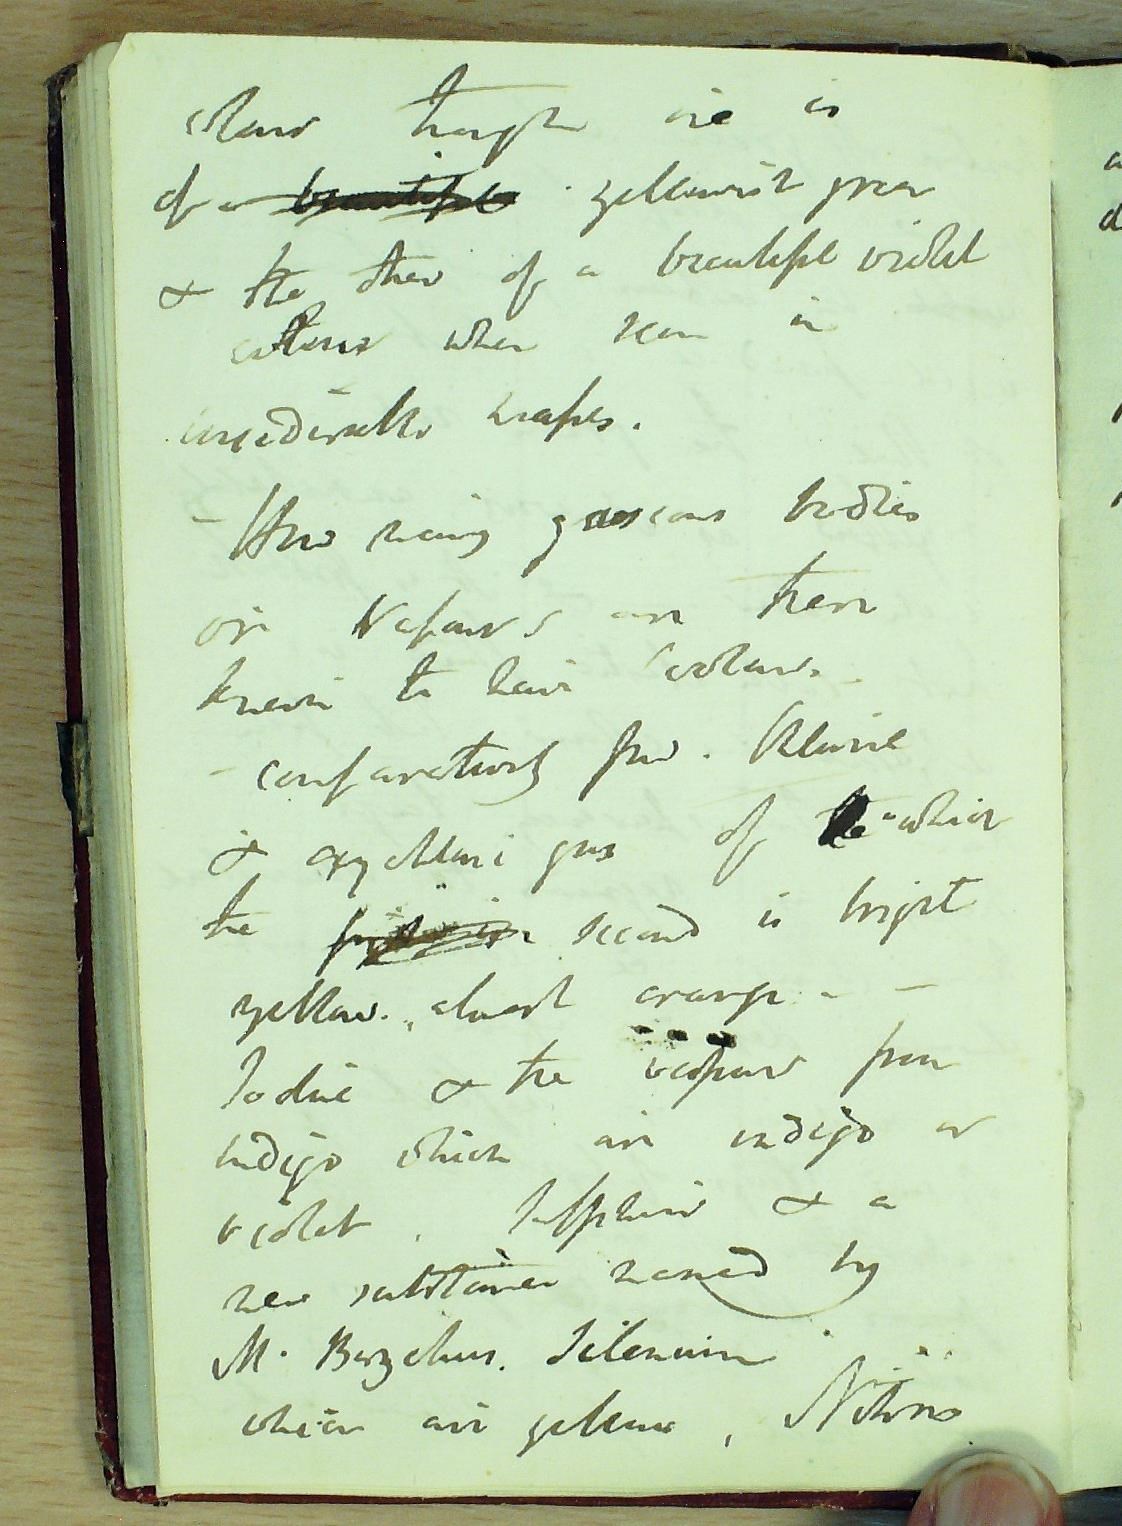 colour though one is
of a beautiful yellowish green
& the other of a beautiful violet
colour when seen in
considerable masses.
- How many gaseous bodies
or Vapours are there
known to have colours.
- comparatively few. Chlorine
& oxychloric gas of which
the second is bright
yellow. almost orange - -
Iodine & the vapour from
Indigo which are indigo or
violet. Sulphur & a
new substance named by
M. Berzelius. Selenium
which are yellow, Nitrous